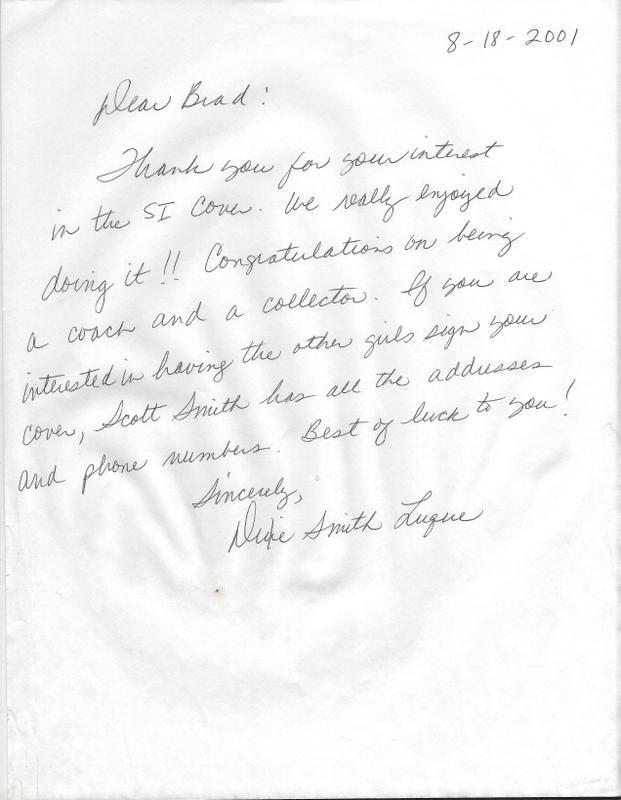 8-18-2001
Dear Brad:
Thank you for your interest
in the SI cover. We really enjoyed
doing it!! Congratulations on being
a coach and a collector. If you are
interested in having the other girls sign your
cover, Scott Smith has all the addresses
and phone numbers. Best of luck to you!
Sincerely,
Dixie Smith Luque